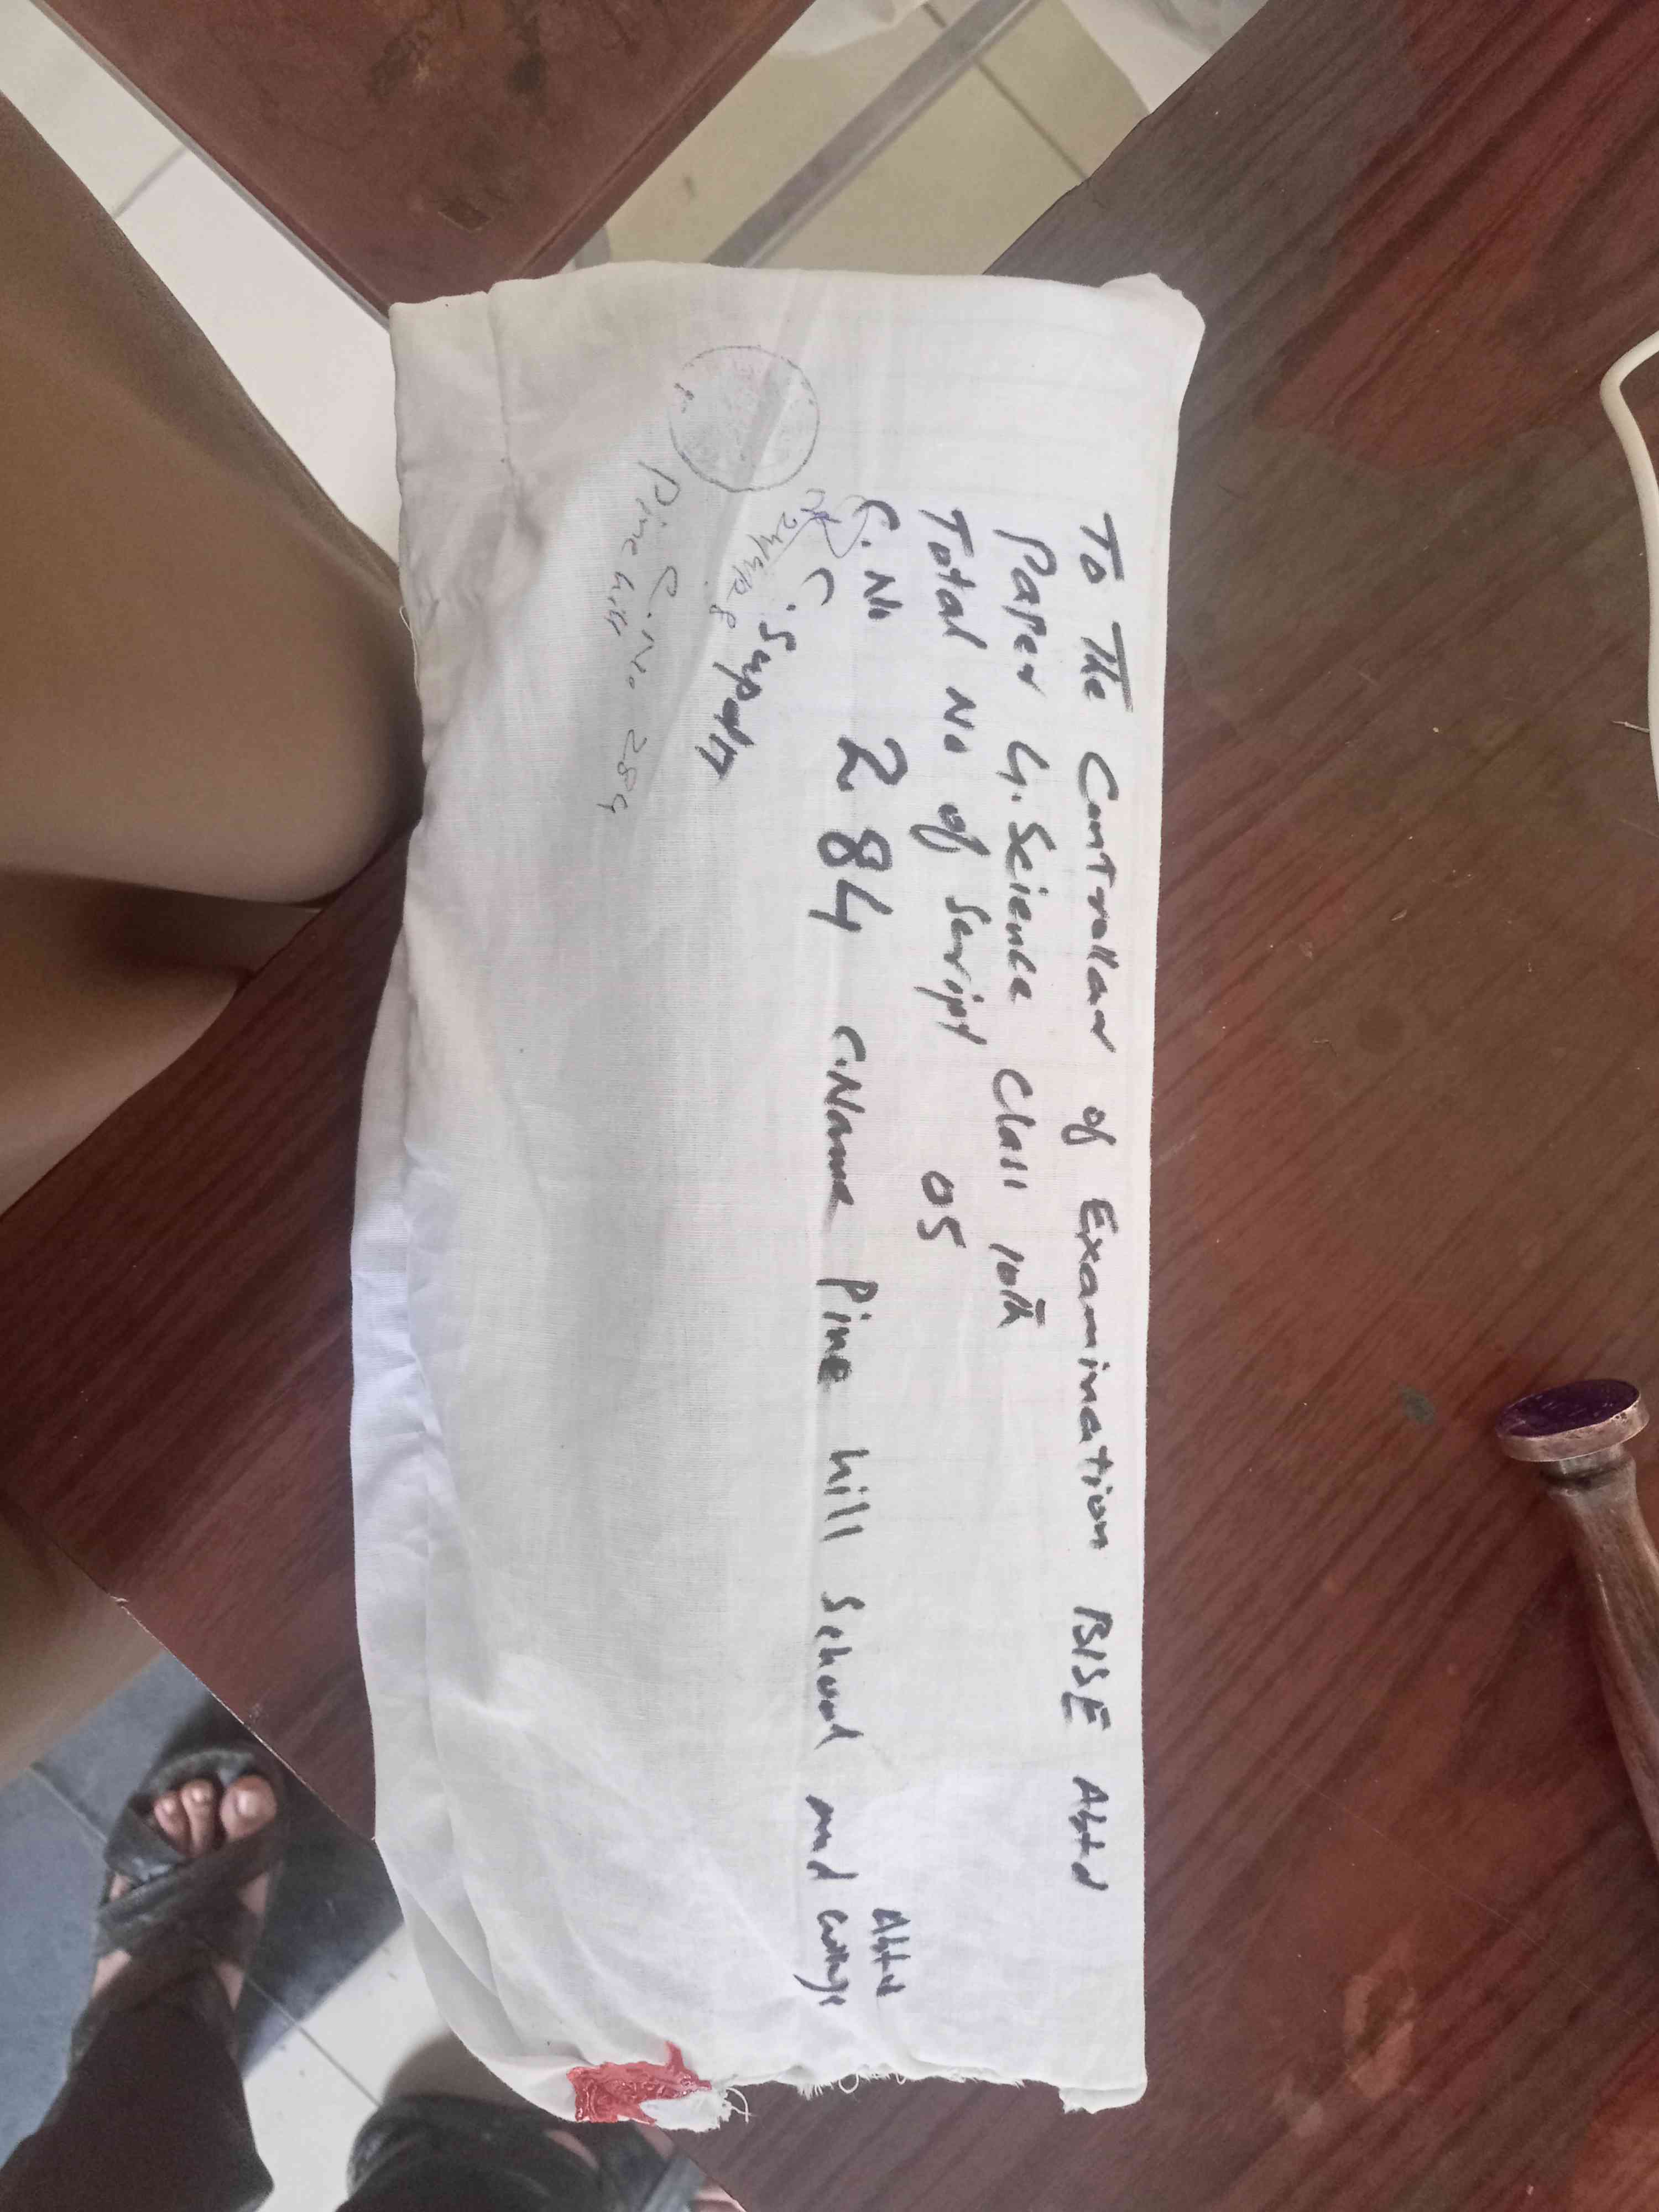 To The Controllar of Examination BISE Abtd
Paper G. Science Class 10th
Total No of Script 05
C. No 284 C.Name Pine hill School and College
Abtd
C. Supdtt
C. No 284
Pine hill